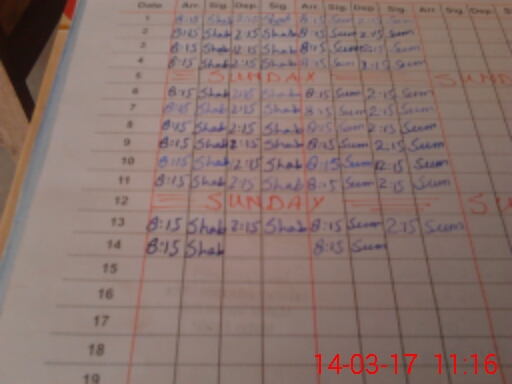 Date Arr. Sig. Dep. Sig. Arr. Sig. Dep. Sig. Arr. Sig. Dep.
1 8:15 Shab 2:15 Shab 8:15 Sum 2:15 Sum
2 8:15 Shab 2:15 Shab 8:15 Sum 2:15 Sum
3 8:15 Shab 2:15 Shab 8:15 Sum 2:15 Sum
4 8:15 Shab 2:15 Shab 8:15 Sum 2:15 Sum
5 SUNDAY SUND
6 8:15 Shab 2:15 Shab 8:15 Sum 2:15 Sum
7 8:15 Shab 2:15 Shab 8:15 Sum 2:15 Sum
8 8:15 Shab 2:15 Shab 8:15 Sum 2:15 Sum
9 8:15 Shab 2:15 Shab 8:15 Sum 2:15 Sum
10 8:15 Shab 2:15 Shab 8:15 Sum 2:15 Sum
11 8:15 Shab 2:15 Shab 8:15 Sum 2:15 Sum
12 SUNDAY SU
13 8:15 Shab 2:15 Shab 8:15 Sum 2:15 Sum
14 8:15 Shab 8:15 Sum
15
16
17
18
19
14-03-17 11:16